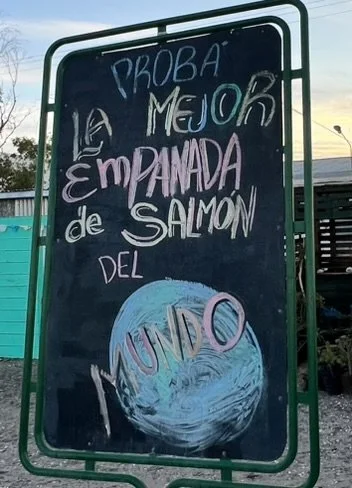 PROBÁ
LA MEJOR
EMPANADA
de SALMÓN
DEL
MUNDO